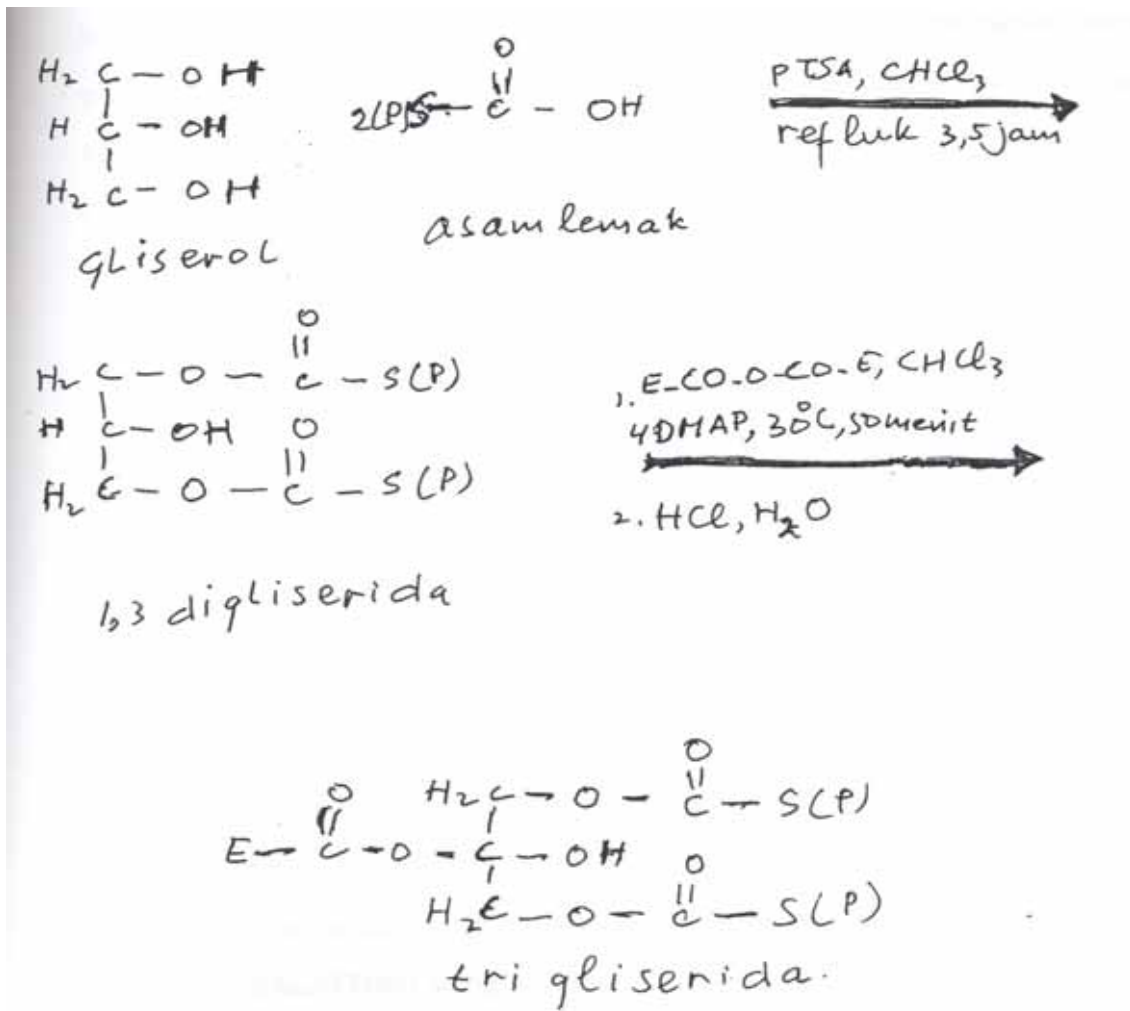 H2 C - O H
H C - OH
H2 C - O H
gliserol
O
2(P)S - C - OH
asam lemak
pTSA, CHCl3
refluk 3,5 jam
O
H2 C - O - C - S(P)
H C - OH O
H2 C - O - C - S(P)
1,3 digliserida
1. E-CO-O-CO-E, CHCl3
4DMAP, 30°C, 50 menit
2. HCl, H2O
O
O H2C - O - C - S(P)
E - C - O - C - OH O
H2C - O - C - S(P)
tri gliserida.